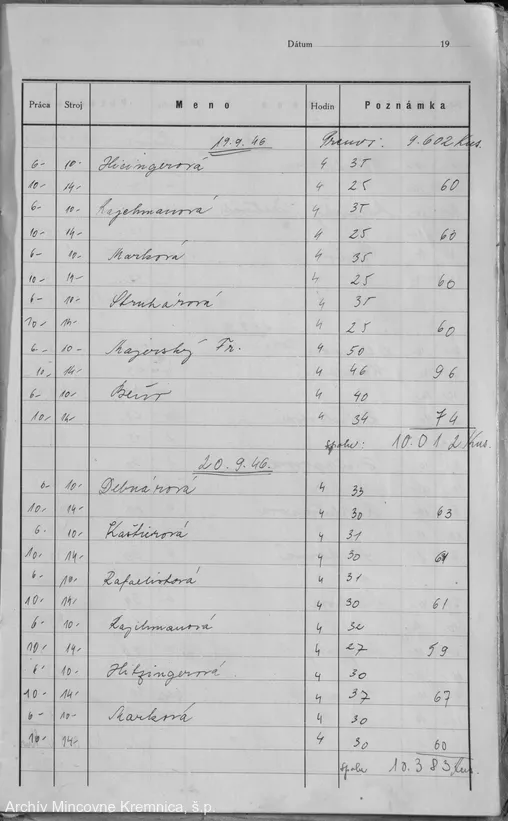 Dátum 19
Práca Stroj Meno Hodin Poznámka
19.9.46 Prenos: 9.602 Kus.
6- 10- Hicingerová 4 35
10- 14- 4 25 60
6- 10- Kajchmanová 4 35
10- 14- 4 25 60
6- 10- Marková 4 35
10- 14- 4 25 60
6- 10- Struhárová 4 35
10- 14- 4 25 60
6- 10- Majerský Fr. 4 50
10- 14- 4 46 96
6- 10- 4 40
10- 14- 4 34 74
Spolu: 10.012 Kus.
20.9.46.
6- 10- Debnárová 4 33
10- 14- 4 30 63
6- 10- Kaštierová 4 31
10- 14- 4 30 61
6- 10- Rafaelisová 4 31
10- 14- 4 30 61
6- 10- Kajchmanová 4 32
10- 14- 4 27 59
6- 10- Hitzingerová 4 30
10- 14- 4 37 67
6- 10- Marková 4 30
10- 14- 4 30 60
Spolu 10.383 Kus.
Archív Mincovne Kremnica, š.p.